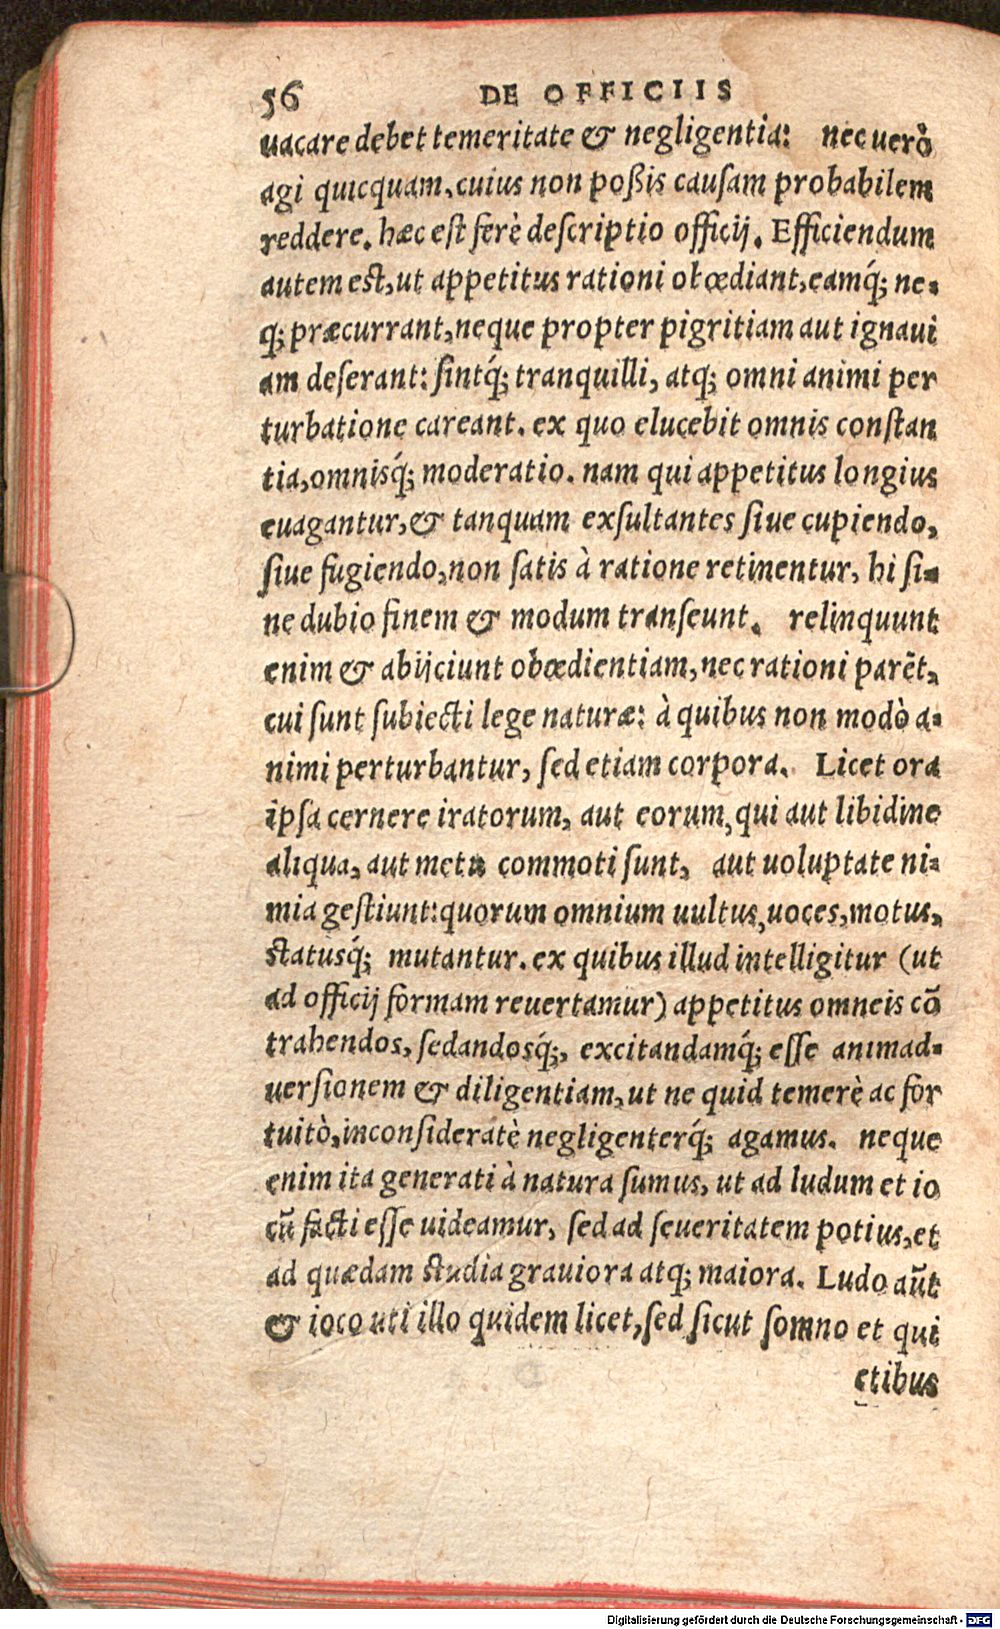 56 DE OFFICIIS
uacare debet temeritate & negligentia: nec uerò
agi quicquam, cuius non poßis causam probabilem
reddere. hæc est ferè descriptio officij. Efficiendum
autem est, ut appetitus rationi obœdiant, eamq́; ne-
q; præcurrant, neque propter pigritiam aut ignaui
am deserant: sintq́; tranquilli, atq; omni animi per
turbatione careant. ex quo elucebit omnis constan
tia, omnisq́; moderatio. nam qui appetitus longius
euagantur, & tanquam exsultantes siue cupiendo,
siue fugiendo, non satis à ratione retinentur, hi si-
ne dubio finem & modum transeunt. relinquunt
enim & abijciunt obœdientiam, nec rationi parēt,
cui sunt subiecti lege naturæ: à quibus non modò a-
nimi perturbantur, sed etiam corpora. Licet ora
ipsa cernere iratorum, aut eorum, qui aut libidine
aliqua, aut metu commoti sunt, aut uoluptate ni-
mia gestiunt: quorum omnium uultus, uoces, motus,
statusq́; mutantur. ex quibus illud intelligitur (ut
ad officij formam reuertamur) appetitus omneis cō
trahendos, sedandosq́;, excitandamq́; esse animad-
uersionem & diligentiam, ut ne quid temerè ac for
tuitò, inconsideratè negligenterq́; agamus. neque
enim ita generati à natura sumus, ut ad ludum et io
cū facti esse uideamur, sed ad seueritatem potius, et
ad quædam studia grauiora atq; maiora. Ludo aūt
& ioco uti illo quidem licet, sed sicut somno et qui
etibus
Digitalisierung gefördert durch die Deutsche Forschungsgemeinschaft - DFG